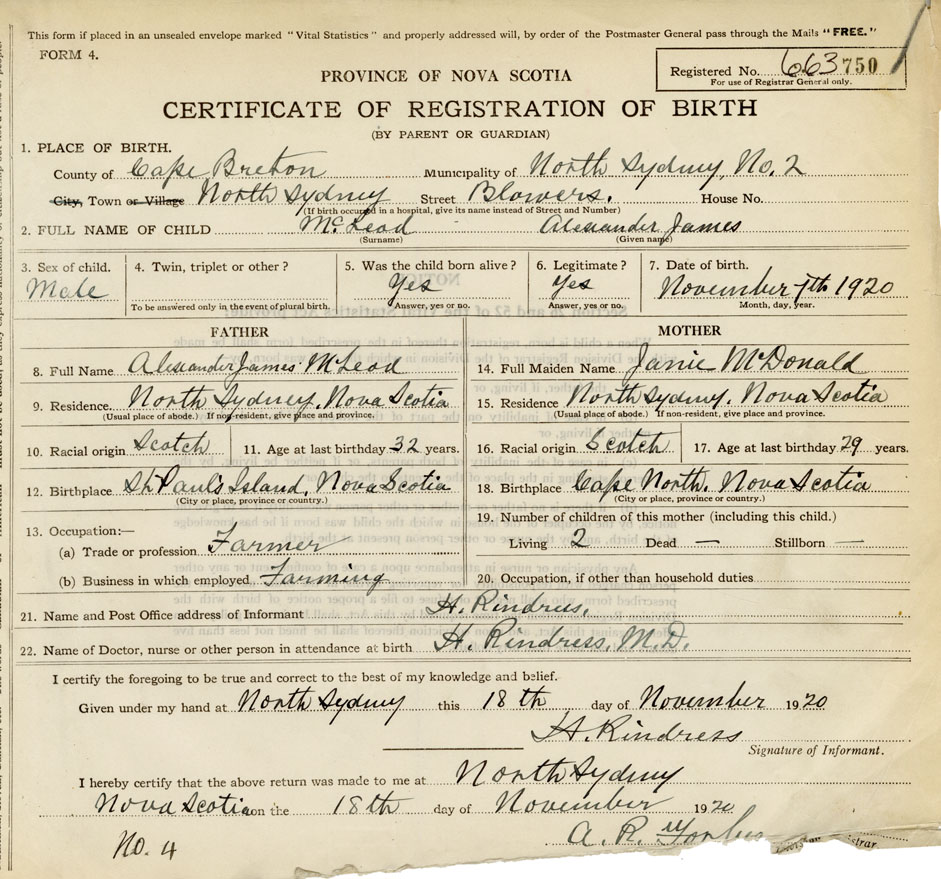 This form if placed in an unsealed envelope marked "Vital Statistics" and properly addressed will, by order of the Postmaster General pass through the Mails "FREE."
FORM 4.
Registered No. 663 750
For use of Registrar General only.
PROVINCE OF NOVA SCOTIA
CERTIFICATE OF REGISTRATION OF BIRTH
(BY PARENT OR GUARDIAN)
1. PLACE OF BIRTH.
County of Cape Breton Municipality of North Sydney, No. 2
City, Town or Village North Sydney Street Blowers. House No.
(If birth occurred in a hospital, give its name instead of Street and Number)
2. FULL NAME OF CHILD McLeod Alexander James
(Surname) (Given name)
3. Sex of child. 4. Twin, triplet or other? 5. Was the child born alive? 6. Legitimate? 7. Date of birth.
Male Yes Yes November 7th 1920
To be answered only in the event of plural birth. Answer, yes or no. Answer, yes or no. Month, day, year.
FATHER
8. Full Name Alexander James McLeod
9. Residence. North Sydney, Nova Scotia
(Usual place of abode.) If non-resident, give place and province.
10. Racial origin Scotch 11. Age at last birthday 32 years.
12. Birthplace St. Paul's Island, Nova Scotia
(City or place, province or country.)
13. Occupation:—
(a) Trade or profession Farmer
(b) Business in which employed Farming
MOTHER
14. Full Maiden Name Janie McDonald
15. Residence North Sydney, Nova Scotia
(Usual place of abode.) If non-resident, give place and province.
16. Racial origin Scotch 17. Age at last birthday 29 years.
18. Birthplace Cape North, Nova Scotia
(City or place, province or country.)
19. Number of children of this mother (including this child.)
Living 2 Dead — Stillborn —
20. Occupation, if other than household duties
21. Name and Post Office address of Informant H. Rindress,
22. Name of Doctor, nurse or other person in attendance at birth H. Rindress, M.D.
I certify the foregoing to be true and correct to the best of my knowledge and belief.
Given under my hand at North Sydney this 18th day of November 1920
H. Rindress
Signature of Informant.
I hereby certify that the above return was made to me at North Sydney
Nova Scotia on the 18th day of November 1920
A. R. Forbes
No. 4